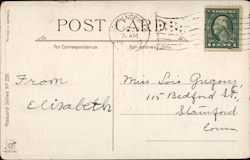 POST CARD
For Correspondence.
For Address Only.
7-AM
From
Elizabeth
Miss Lois Gregory,
115 Bedford St,
Stamford
Conn.
Postcard-Series Nº 259